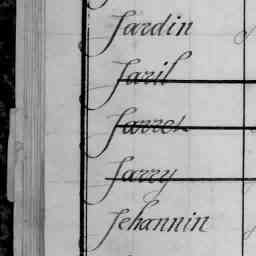 Jardin
Jaril
Jarret
Jarry
Jehannin